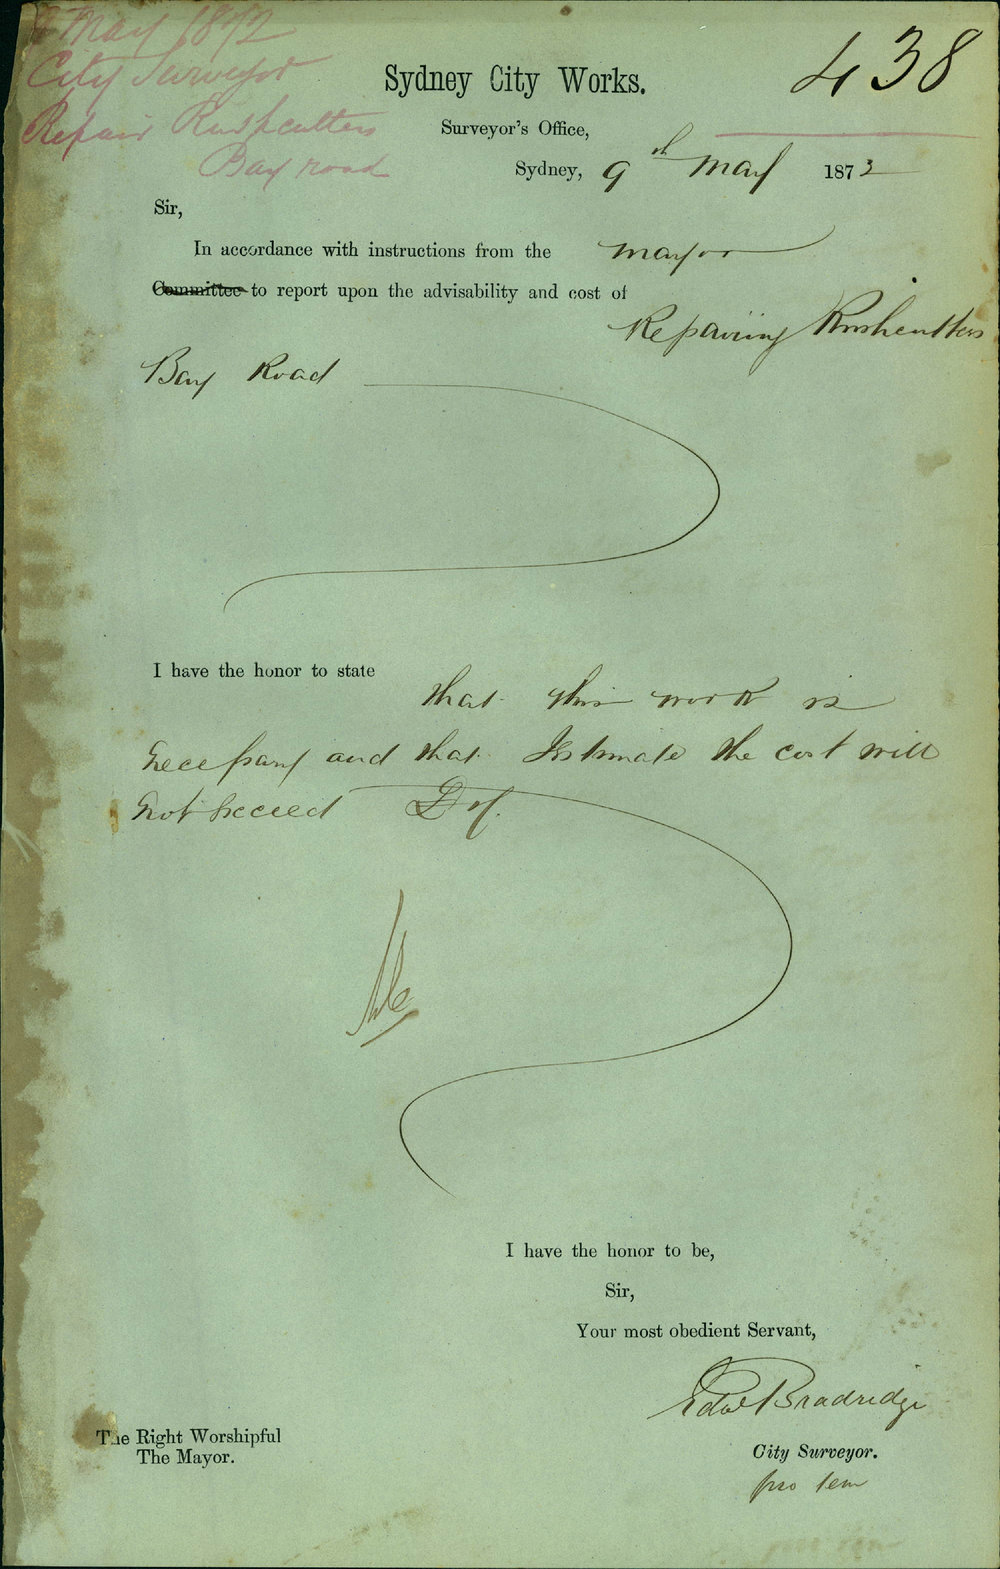 May 1872
City Surveyor
Repair Rushcutters
Bay road
438
Sydney City Works.
Surveyor's Office,
Sydney, 9th May 1872
Sir,
In accordance with instructions from the Mayor
Committee to report upon the advisability and cost of
Repairing Rushcutters
Bay Road
I have the honor to state
that this work is
necessary and that Estimate the cost will
not exceed
I have the honor to be,
Sir,
Your most obedient Servant,
Edwd Bradridge
The Right Worshipful
The Mayor.
City Surveyor.
pro tem